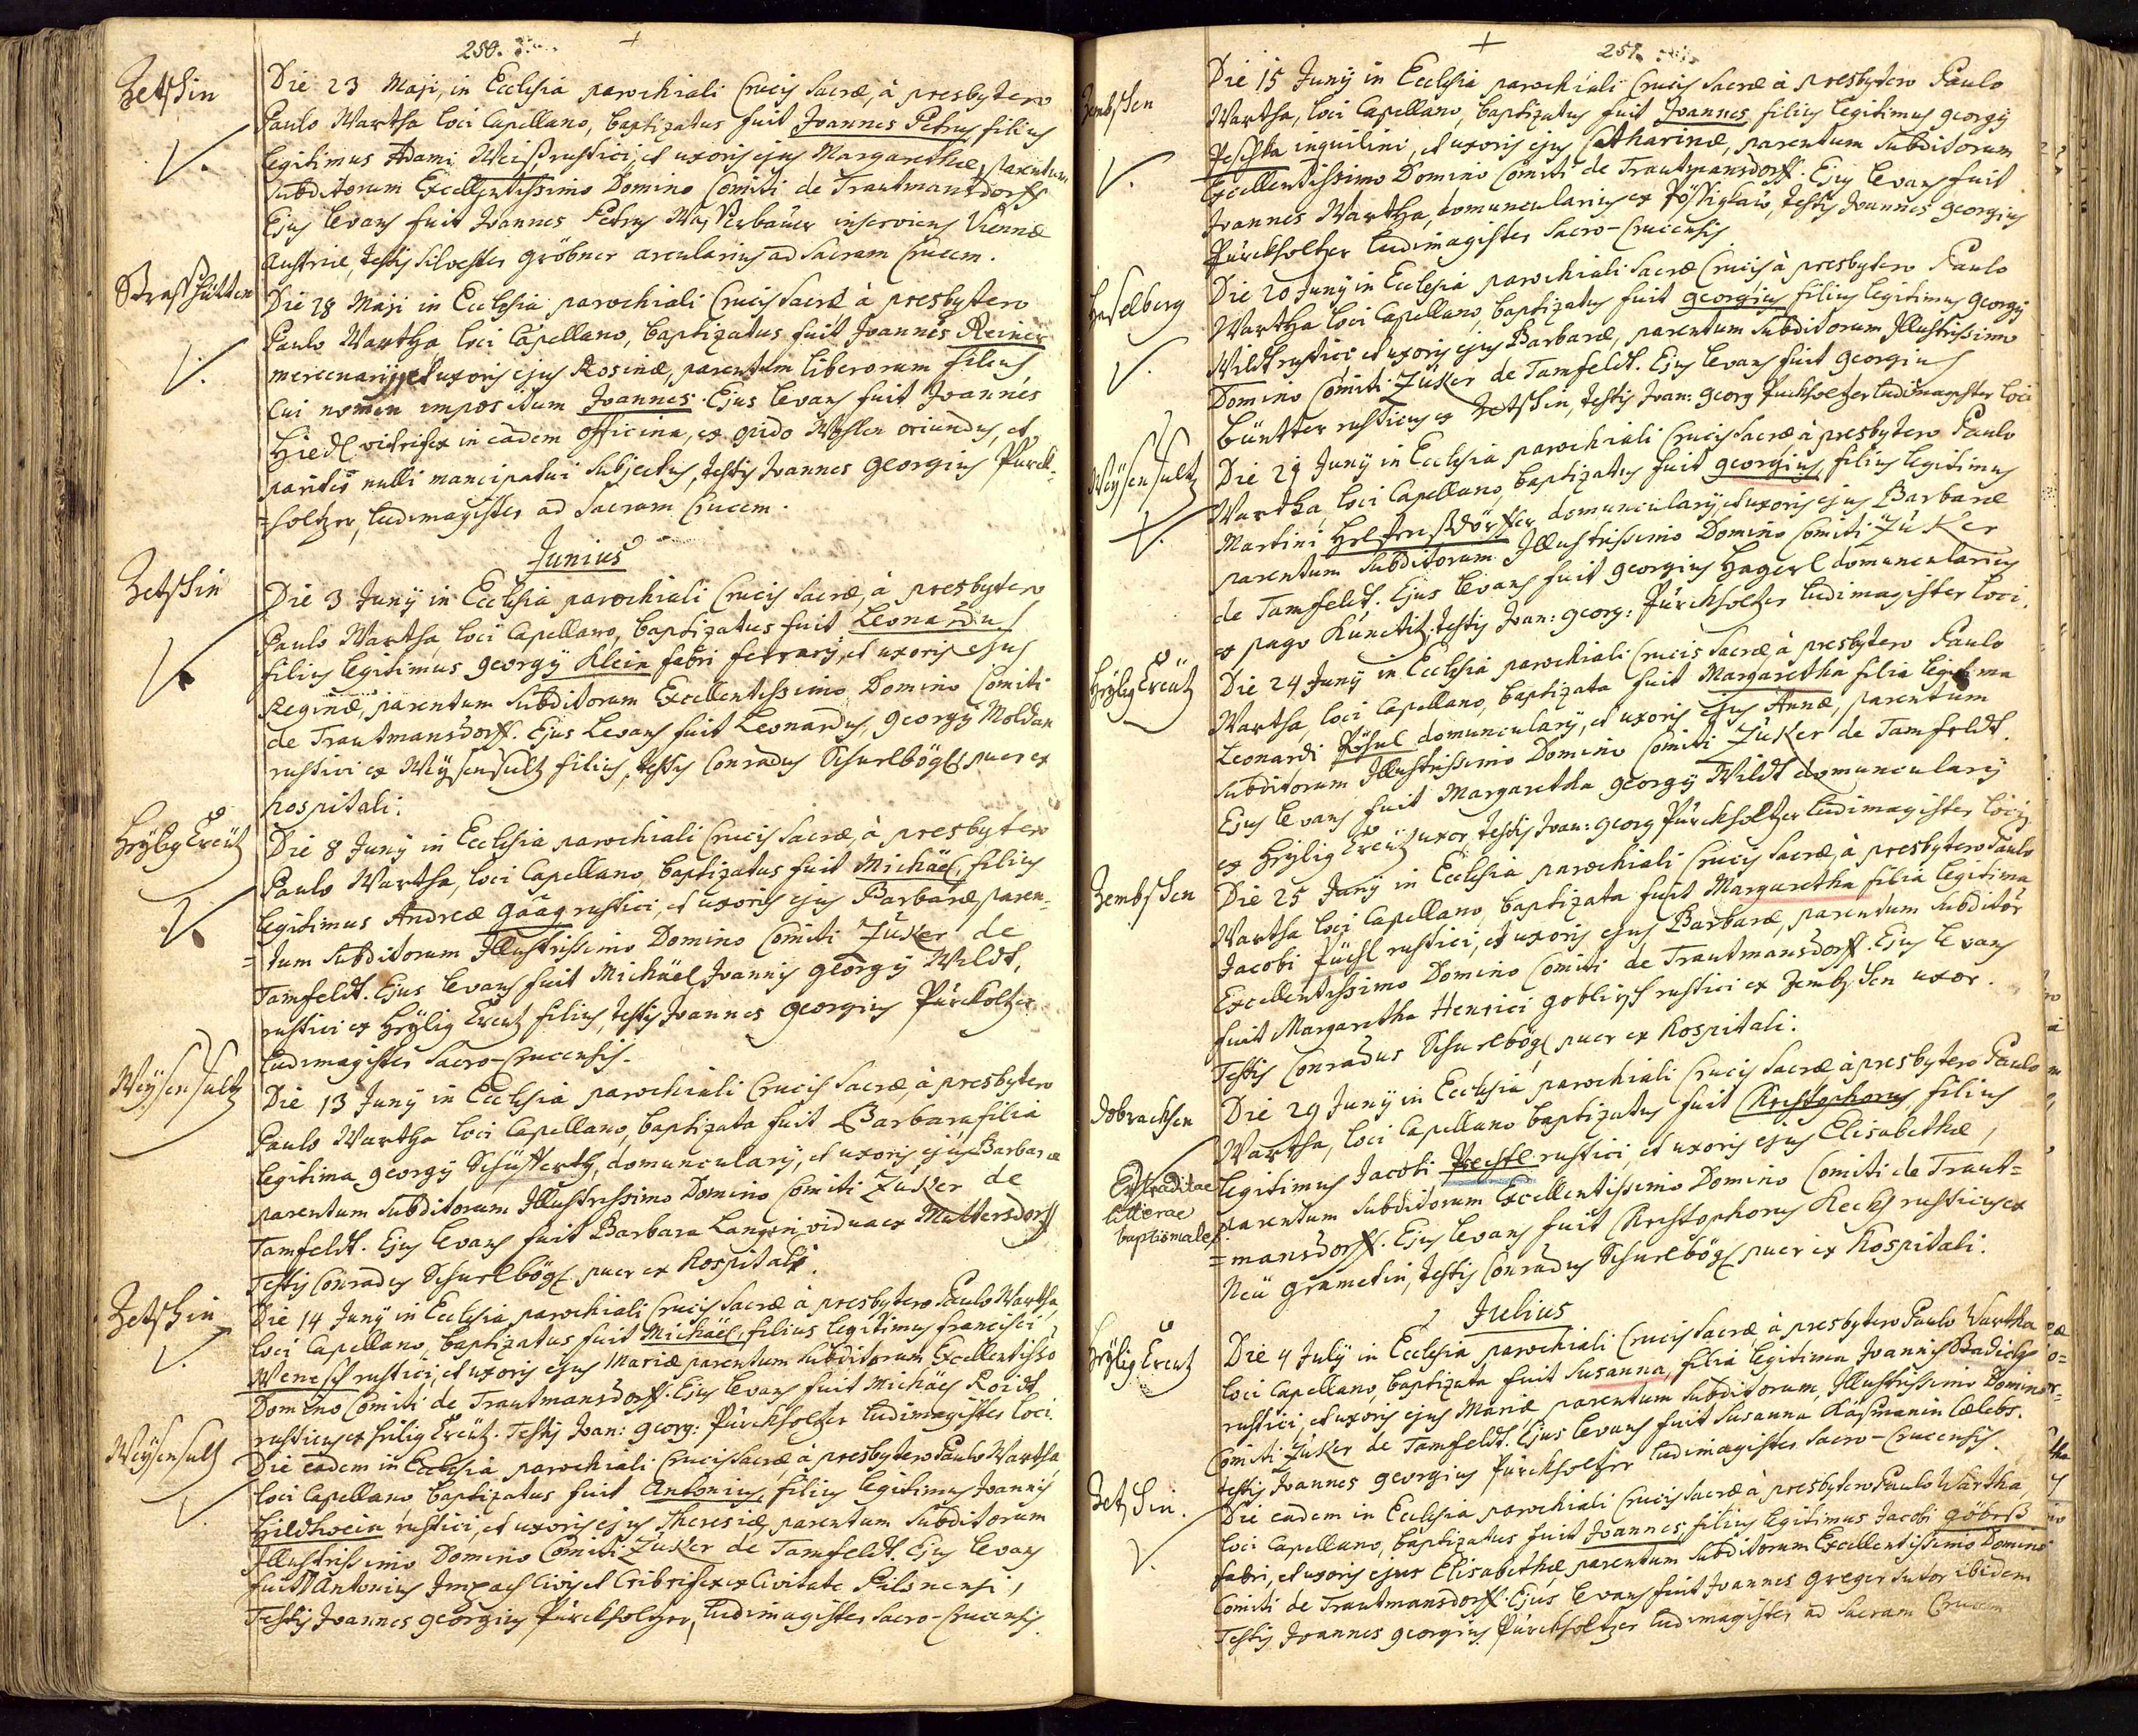 250.
Zetschin
Die 23 Maji, in Ecclesia parochiali Crucis Sacræ, à presbytero
Paulo Wartha loci Capellano, baptizatus fuit Joannes Petrus filius
legitimus Adami Weiß rustici, et uxoris ejus Margarethæ, parentum
subditorum Excellentissimo Domino Comiti de Trautmansdorff
Ejus levans fuit Joannes Petrus inserviens Viennæ
Austriæ, testis Silvester Gröbner arcularius ad Sacram Crucem.
Straßhütten
Die 28 Maji in Ecclesia parochiali Crucis Sacræ à presbytero
Paulo Wartha loci Capellano, baptizatus fuit Joannes Reiner
mercenarij, et uxoris ejus Rosinæ, parentum liberorum filius,
cui nomen impositum Joannes. Ejus levans fuit Joannes
Hiedl vitrifex in eadem officina, ex opido oriundus, et
pariter nulli mancipatui subjectus, testis Joannes Georgius Pürck-
=holtzer, ludimagister ad Sacram Crucem.
Junius
Zetschin
Die 3 Junij in Ecclesia parochiali Crucis Sacræ, à presbytero
Paulo Wartha, loci Capellano, baptizatus fuit Leonardus
filius legitimus Georgij Klein fabri ferrarij, et uxoris ejus
Reginæ, parentum subditorum Excellentissimo Domino Comiti
de Trautmansdorff. Ejus Levans fuit Leonardus, Georgij Moldan
rustici ex Weysensultz filius, testis Conradus Schurlbögl puer ex
hospitali.
Heylig Creütz
Die 8 Junij in Ecclesia parochiali Crucis Sacræ, à presbytero
Paulo Wartha, loci Capellano, baptizatus fuit Michäel, filius
legitimus Andreæ Gäag rustici, et uxoris ejus Barbaræ, paren-
=tum subditorum Illustrissimo Domino Comiti Zuker de
Tamfeldt. Ejus levans fuit Michäel Joannis Georgij Wildt,
rustici ex Heylig Creutz filius, testis Joannes Georgius Pürckoltzer
ludimagister Sacro-Crucensis.
Weysensultz
Die 13 Junij in Ecclesia parochiali Crucis Sacræ, à presbytero
Paulo Wartha loci Capellano, baptizata fuit Barbara filia
legitima Georgij Schüfferth, domuncularij, et uxoris ejus Barbaræ
parentum subditorum Illustrissimo Domino Comiti Zuker de
Tamfeldt. Ejus levans fuit Barbara Langin vidua ex Muttersdorff
Testis Conradus Schurlbögl puer ex hospitali.
Zetschin
Die 14 Junij in Ecclesia parochiali Crucis Sacræ à presbytero Paulo Wartha
loci Capellano, baptizatus fuit Michäel, filius legitimus Francisci
Wenesch rustici, et uxoris ejus Mariæ parentum subditorum Excellentisso
Domino Comiti de Trautmansdorff. Ejus levans fuit Michäel Loidt
rusticus ex Heilig Creütz. Testis Joan: Georg: Pürckholtzer ludimagister loci.
Weysensultz
Die eadem in Ecclesia parochiali Crucis Sacræ, à presbytero Paulo Wartha
loci Capellano baptizatus fuit Antonius, filius legitimus Joannis
Hildwein rustici, et uxoris ejus Theresiæ, parentum subditorum
Illustrissimo Domino Comiti Zuker de Tamfeldt. Ejus levans
fuit Antonius Civis et Cribrifex ex Civitate Pilsnensi,
Testis Joannes Georgius Pürckholtzer, ludimagister Sacro-Crucensis.
251.
Zembschen
Die 15 Junij in Ecclesia parochiali Crucis Sacræ à presbytero Paulo
Wartha, loci Capellano, baptizatus fuit Joannes, filius legitimus Georgij
Peschka inquilini, et uxoris ejus Catharinæ, parentum subditorum
Excellentissimo Domino Comiti de Trautmansdorff. Ejus levans fuit
Joannes Wartha, domuncularius ex Pössigkau, testis Joannes Georgius
Pürckholtzer ludimagister Sacro-Crucensis
Haselberg
Die 20 Junij in Ecclesia parochiali Sacræ Crucis à presbytero Paulo
Wartha loci Capellano, baptizatus fuit Georgius filius legitimus Georgij
Wildt rustici, et uxoris ejus Barbaræ, parentum subditorum Illustrissimo
Domino Comiti Zuker de Tamfeldt. Ejus levans fuit Georgius
Büntter rusticus ex Zetschin, testis Joan: Georg Pürckholtzer ludimagister loci
Weysensultz
Die 21 Junij in Ecclesia parochiali Crucis Sacræ à presbytero Paulo
Wartha, loci Capellano, baptizatus fuit Georgius, filius legitimus
Martini Helffensdörffer domuncularij, et uxoris ejus Barbaræ
parentum subditorum Illustrissimo Domino Comiti Zuker
de Tamfeldt. Ejus levans fuit Georgius Hagerl domuncularius
ex pago Kunctitz. Testis Joan: Georg: Pürckholtzer ludimagister loci.
Heylig Creütz
Die 24 Junij in Ecclesia parochiali Crucis Sacræ, à presbytero Paulo
Wartha, loci Capellano, baptizata fuit Margaretha filia legitima
Leonardi domuncularij, et uxoris ejus Annæ, parentum
subditorum Illustrissimo Domino Comiti Zuker de Tamfeldt.
Ejus levans fuit Margaretha Georgij Wildt domuncularij
ex Heylig Creütz uxor, testis Joan: Georg Pürckholtzer ludimagister loci.
Zembschen
Die 25 Junij in Ecclesia parochiali Crucis Sacræ, à presbytero Paulo
Wartha loci Capellano, baptizata fuit Margaretha filia legitima
Jacobi Püchl rustici, et uxoris ejus Barbaræ, parentum subditor
Excellentissimo Domino Comiti de Trautmansdorff. Ejus levans
fuit Margaretha Henrici Goblirsch rustici ex Zembschen uxor.
Testis Conradus Schurlbögl puer ex hospitali.
Dobrachsen
Die 29 Junij in Ecclesia parochiali Crucis Sacræ à presbytero Paulo
Wartha, loci Capellano baptizatus fuit Christophorus filius
Extraditae
litterae
baptismales
legitimus Jacobi Prechtl rustici, et uxoris ejus Elisabethæ,
parentum subditorum Excellentissimo Domino Comiti de Traut=
=mansdorff. Ejus levans fuit Christophorus Reckh rusticus ex
Neü Grametin, testis Conradus Schurlbögl puer ex hospitali.
Julius
Heylig Creutz
Die 4 July in Ecclesia parochiali Crucis Sacræ à presbytero Paulo Wartha
loci Capellano, baptizata fuit Susanna, filia legitima Joannis Badick
rustici, et uxoris ejus Mariæ parentum subditorum, Illustrissimo Domino
Comiti Zuker de Tamfeldt. Ejus levans fuit Susanna Käsmanin Cælebs.
testis Joannes Georgius Pürckholtzer ludimagister Sacro-Crucensis.
Zetschin.
Die eadem in Ecclesia parochiali Crucis Sacræ à presbytero Paulo Wartha
loci Capellano, baptizatus fuit Joannes, filius legitimus Jacobi Göberß
fabri, et uxoris ejus Elisabethæ parentum subditorum Excellentissimo Domino
Comiti de Trautmansdorff. Ejus levans fuit Joannes Greger sutor ibidem
Testis Joannes Georgius Pürckholtzer ludimagister ad Sacram Crucem